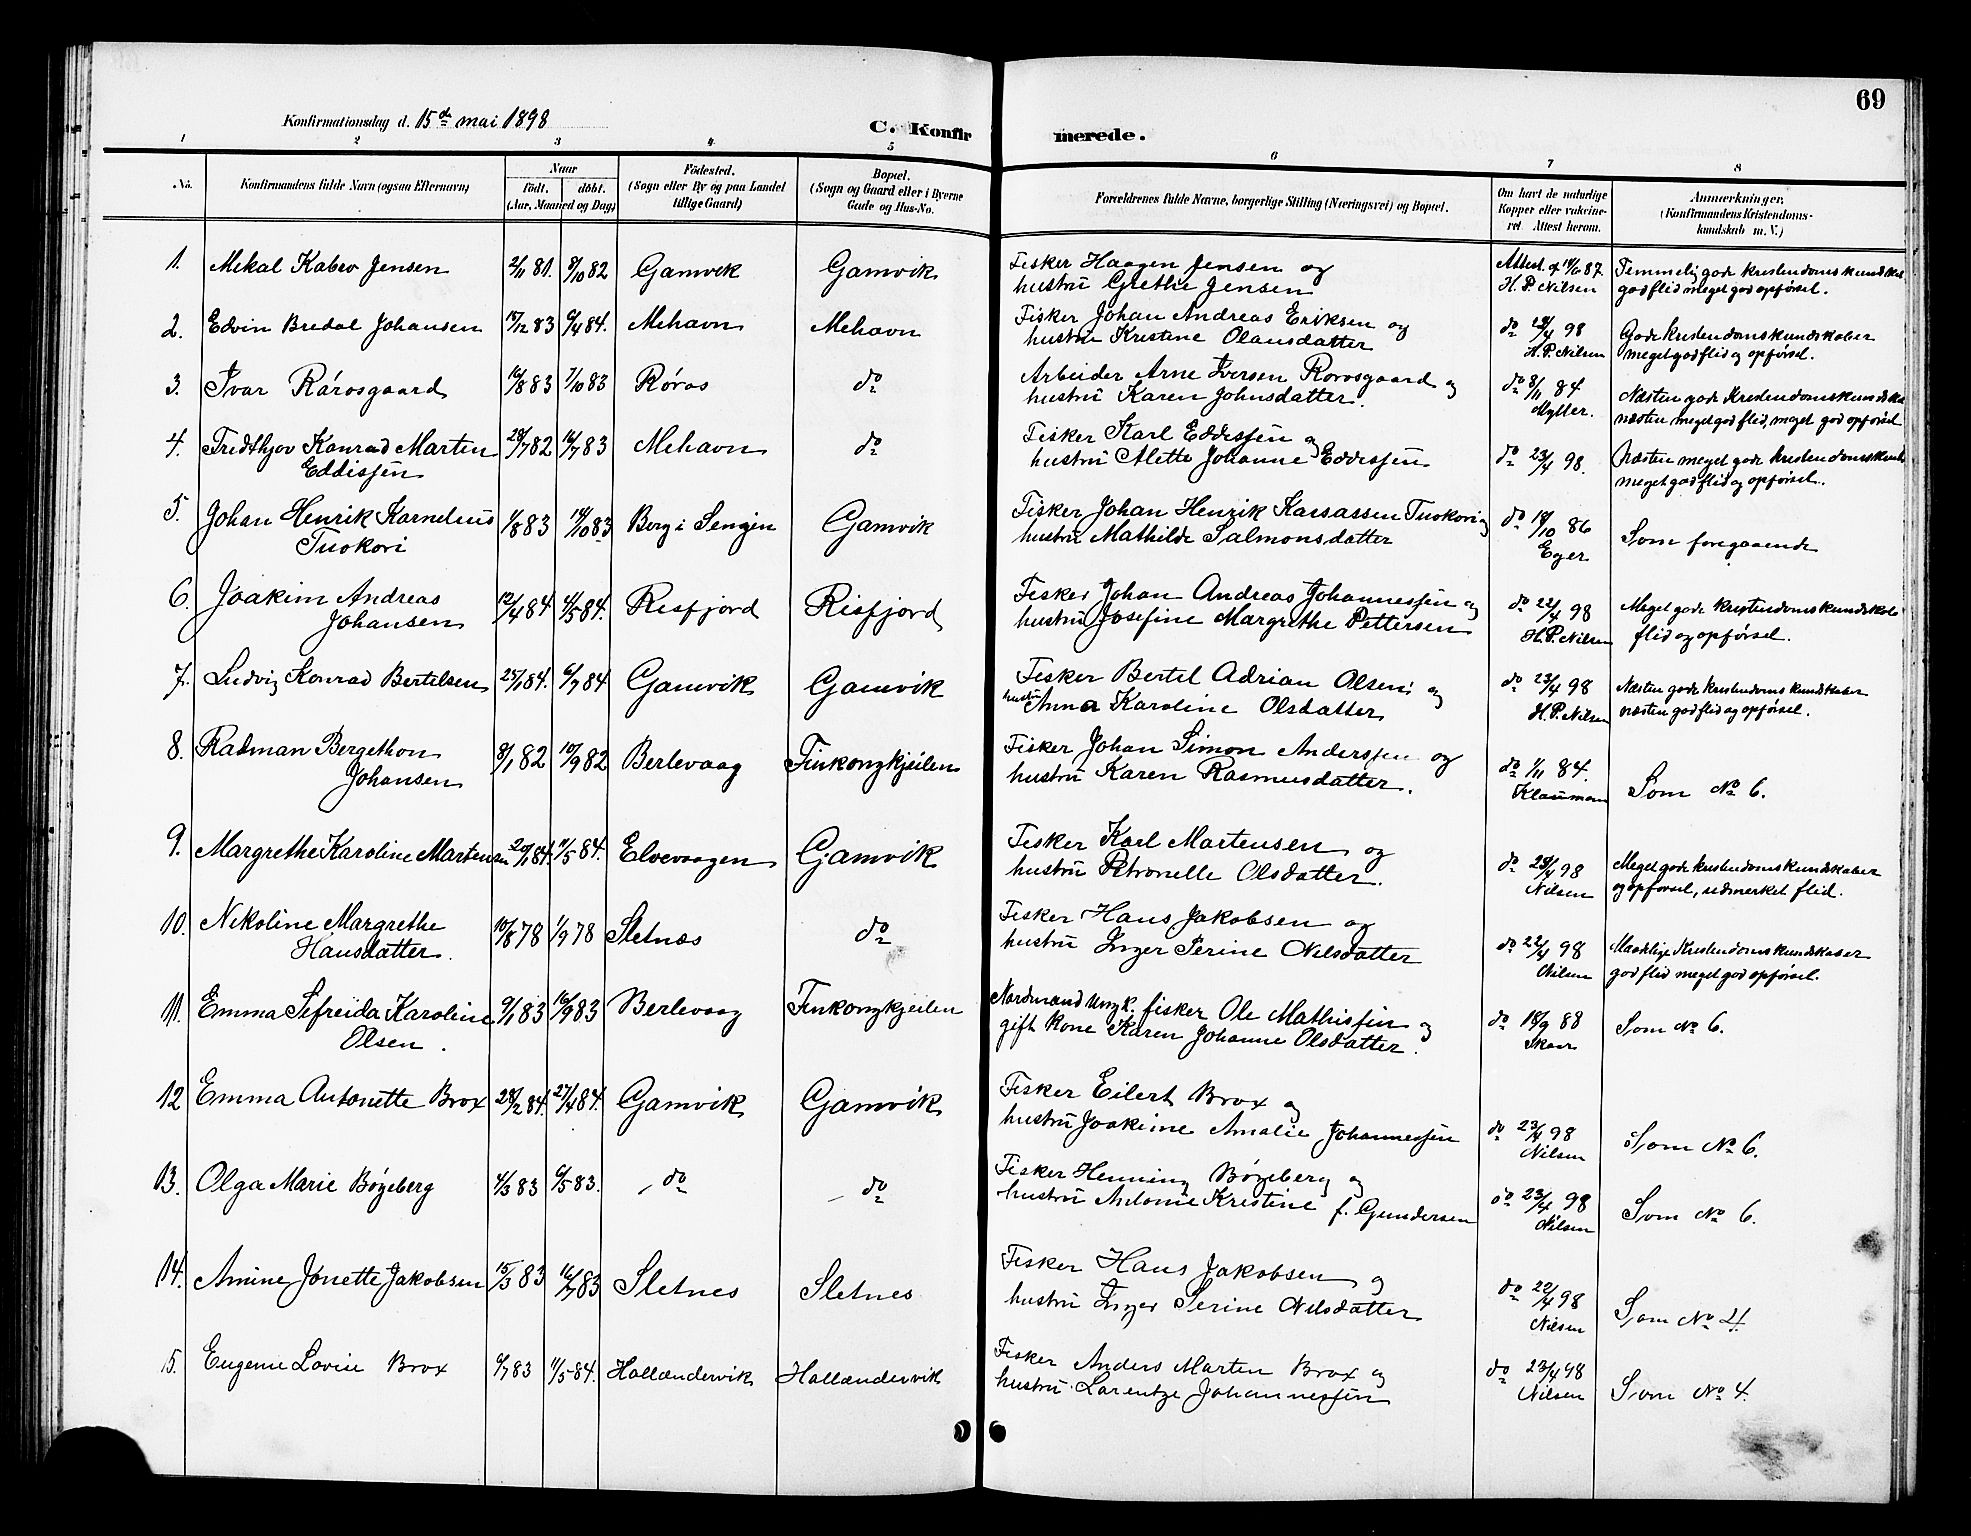 69
Konfirmationsdag d. 15de mai 1898
C. Konfirmerede.
1 2 3 4 5 6 7 8
No. Konfirmandens fulde Navn (ogsaa Efternavn) Naar födt. döbt. (Aar, Maaned og Dag) Födested. (Sogn eller By og paa Landet tillige Gaard) Bopæl. (Sogn og Gaard eller i Byerne Gade og Hus-No. Forældrenes fulde Navne, borgerlige Stilling (Næringsvei) og Bopæl. Om havt de naturlige Kopper eller vakcineret. Attest herom. Anmærkninger. (Konfirmandens Kristendomskundskab m. V.)
1. Mikal Jensen 2/11 81. 8/10 82 Gamvik Gamvik Fisker Haagen Jensen og Attest af 87. Temmelig gode kristendomskundskab
hustru Grethe Jensen H. P. Nilsen god flid meget god opførsel.
2. Edvin Bredal Johansen 83 6/4 84. Mehavn Mehavn Fisker Johan Andreas Eriksen og do 98 Gode kristendomskundskaber
hustru Kristine Olausdatter H. P. Nilsen meget god flid og opførsel.
3. Ivar Rørosgaard 16/8 83 7/10 83 Røros do Arbeider Arne Iversen Rørosgaard og do 8/11 84 Næsten gode Kristendomskundska
hustru Karen Johnsdatter. Mylter. næsten meget god flid, meget god opførsel
4. Fredthjov Konrad Martin 29/7 82 16/7 83 Mehavn do Fisker Karl Eddissen og do 23/4 98. Næsten meget gode kristendomskund
Eddissen hustru Alette Johanne Eddissen meget god flid og opførsel.
5. Johan Henrik Kornelius 1/8 83 14/10 83 Berg i Senjen Gamvik Fisker Johan Henrik Tuokori og do 18/10 86 Som foregaaende
Tuokori hustru Mathilde Salmonsdatter Eger
6. Joakim Andreas 12/4 84 4/5 84. Risfjord Risfjord Fisker Johan Andreas Johannessen og do 22/4 98 Meget gode kristendomskundskab
Johansen hustru Josefine Margrethe Pettersen H. P. Nilsen flid og opførsel.
7. Ludvig Konrad Bertelsen 25/1 84. 6/7 84 Gamvik Gamvik Fisker Bertel Adrian Olsen og do 23/4 98 Næsten gode kristendoms kundskaber
hustru Anna Karoline Olsdatter H. P. Nilsen næsten god flid og opførsel.
8. Radman Bergethon 8/1 82 10/9 82 Berlevaag Finkongkjeilen Fisker Johan Simon Anderssen og do 1/11 84. Som No 6.
Johansen hustru Karen Rasmusdatter. Klaumann
9. Margrethe Karoline Martensen 20/1 84. 11/5 84. Elvevaagen Gamvik Fisker Karl Martensen og do 98 Meget gode kristendomskundskaber
hustru Petronelle Olsdatter. Nilsen og opførsel, udmerket flid.
10. Nikoline Margrethe 10/8 78 1/9 78 Sletnæs do Fisker Hans Jakobsen og do 22/4 98 Maadelige Kristendomskundskaber
Hansdatter. hustru Inger Serine Nilsdatter Nilsen god flid meget god opførsel.
11. Emma Sefreida Karoline 9/1 83 16/9 83 Berlevaag Finkongkjeilen Nordmand Ungk. fisker Ole Mathissen og do 18/9 88 Som No 6.
Olsen. gift kone Karen Johanne Olsdatter. Skaar
12 Emma Antonette Brox 28/2 84. 27/4 84. Gamvik Gamvik Fisker Eilert Brox og
hustru Joakime Amalie Johannessen do 23/4 98 Som No 6.
Nilsen
13. Olga Marie Bøgeberg 4/3 83 6/5 83. do do Fisker Henning Bøgeberg og
hustru Antonie Kristine f. Gundersen do 23/4 98 Som No 6.
Nilsen
14. Amine Jonette Jakobsen 15/3 83 16/7 83 Sletnes Sletnes Fisker Hans Jakobsen og do 22/4 98 Som No 4.
hustru Inger Serine Nilsdatter Nilsen
15. Eugenie Lovise Brox 83 11/5 84. Hollændervik Hollændervik Fisker Anders Marten Brox og do 23/4 98 Som No 4.
hustru Larentze Johannessen Nilsen